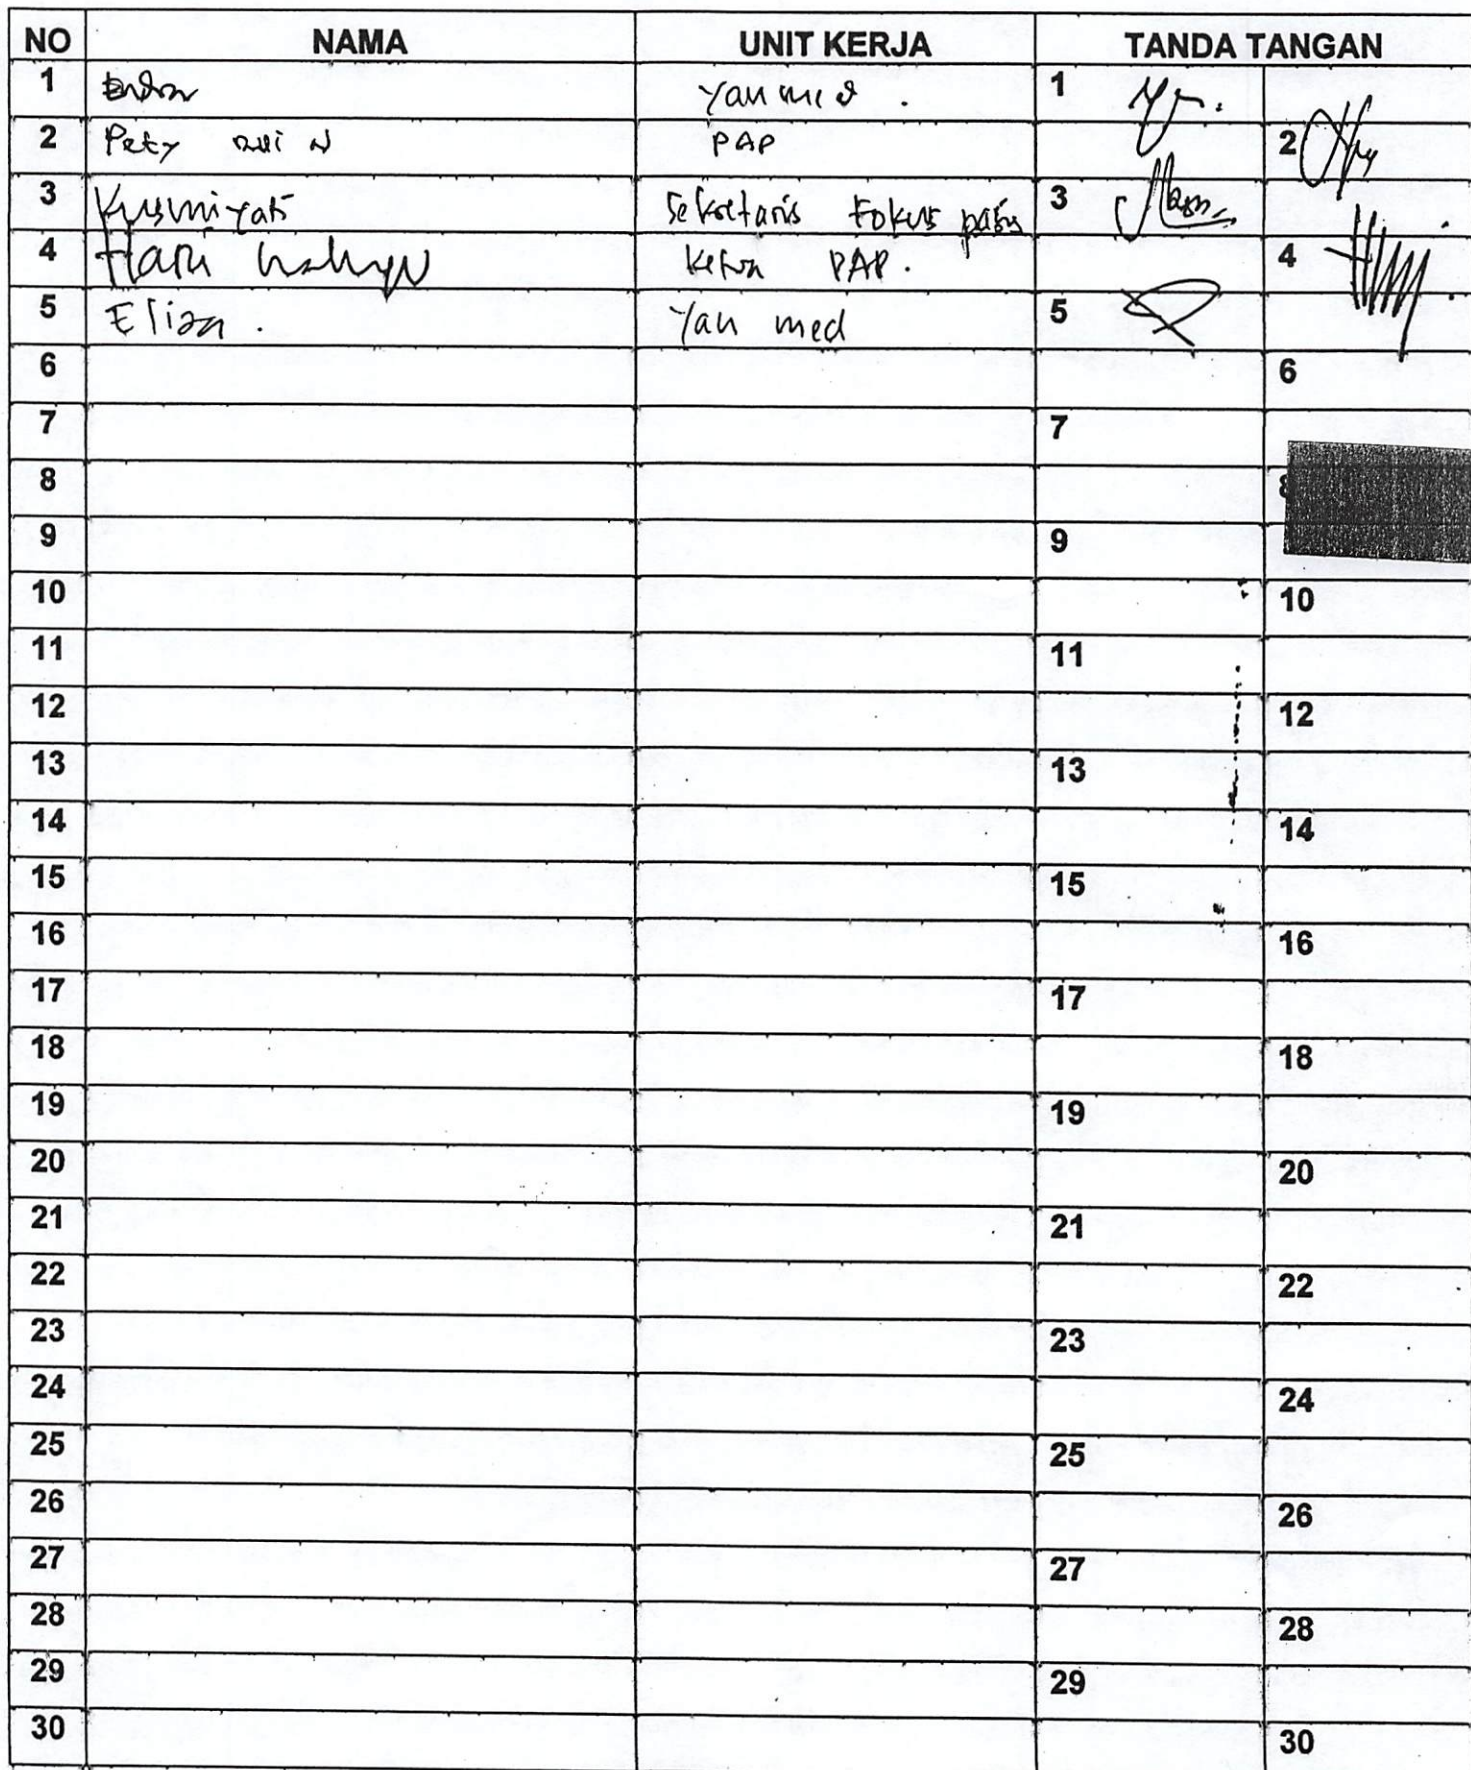 NO NAMA UNIT KERJA TANDA TANGAN
1 Yan med . 1
2 Pety PAP 2
3 Kusmiyati Sekretaris Fokus pasien 3
4 Hari Wahyu Ketua PAP. 4
5 Eliza . Yan med 5
6 6
7 7
8 8
9 9
10 10
11 11
12 12
13 13
14 14
15 15
16 16
17 17
18 18
19 19
20 20
21 21
22 22
23 23
24 24
25 25
26 26
27 27
28 28
29 29
30 30